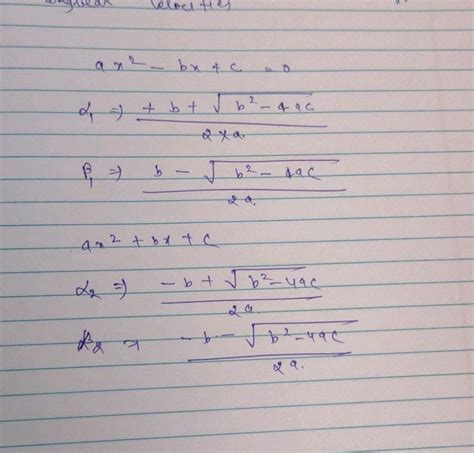 ax² - bx + c = 0
α₁ ⇒ + b + √(b² - 4ac) / 2 × a.
β₁ ⇒ b - √(b² - 4ac) / 2a.
ax² + bx + c
α₂ ⇒ - b + √(b² - 4ac) / 2a.
β₂ ⇒ - b - √(b² - 4ac) / 2a.